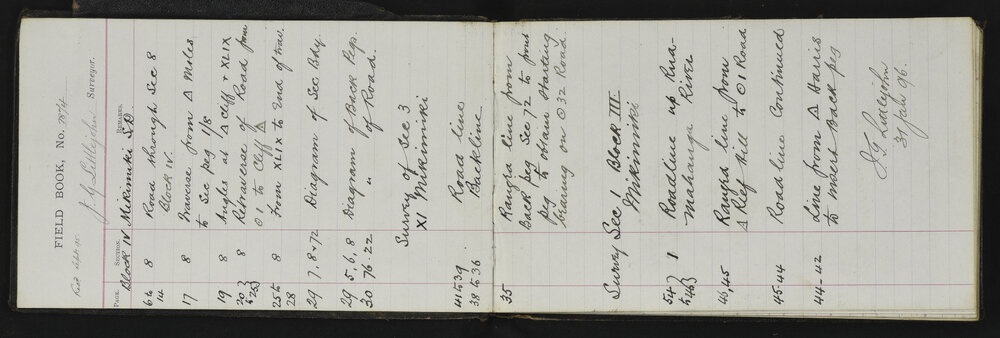 FIELD BOOK, No. 787/4
J. G. Littlejohn Surveyor.
PAGE. SECTION. REMARKS.
Block IV Mikimiki S.D.
6 to 14 8 Road through Sec 8
Block IV.
17 8 Traverse from △ Moles
to Sec peg 1/8
19 8 Angles at △ Cliff & XLIX
20 to 25 } 8 Retraverse of Road from
01 to Cliff △
25 to 28 8 From XLIX to end of trav.
29 7, 8 & 72 Diagram of Sec Bdy.
29 5, 6, 8 Diagram of Back Pegs
30 76. 22 " of Road.
Survey of Sec 3
XI Mikimiki
41 to 39 Road line
38 to 36 Backline
35 Rangra line from
Back peg Sec 72 to front
peg to obtain starting
bearing on O 32 Road.
Survey Sec 1 Block III
Mikimiki
54 to 46 } 1 Roadline up Rua-
mahanga River
46, 45 Rangra line from
△ Rief Hill to O1 Road
45-44 Road line Continued
44-42 Line from △ Harris
to insert Back peg
J G Littlejohn
31 July 96.